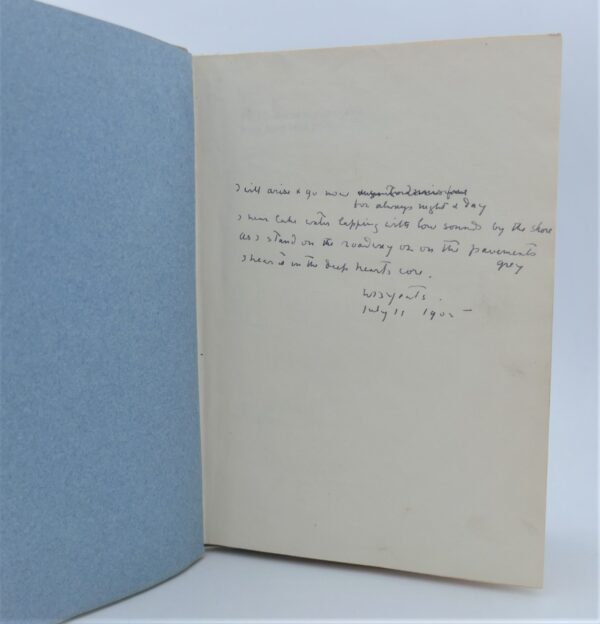 I will arise & go now
for always night & day
I hear lake water lapping with low sounds by the shore
as I stand on the roadway or on the pavements
grey
I hear it in the deep hearts core.
WB Yeats.
July 11 190